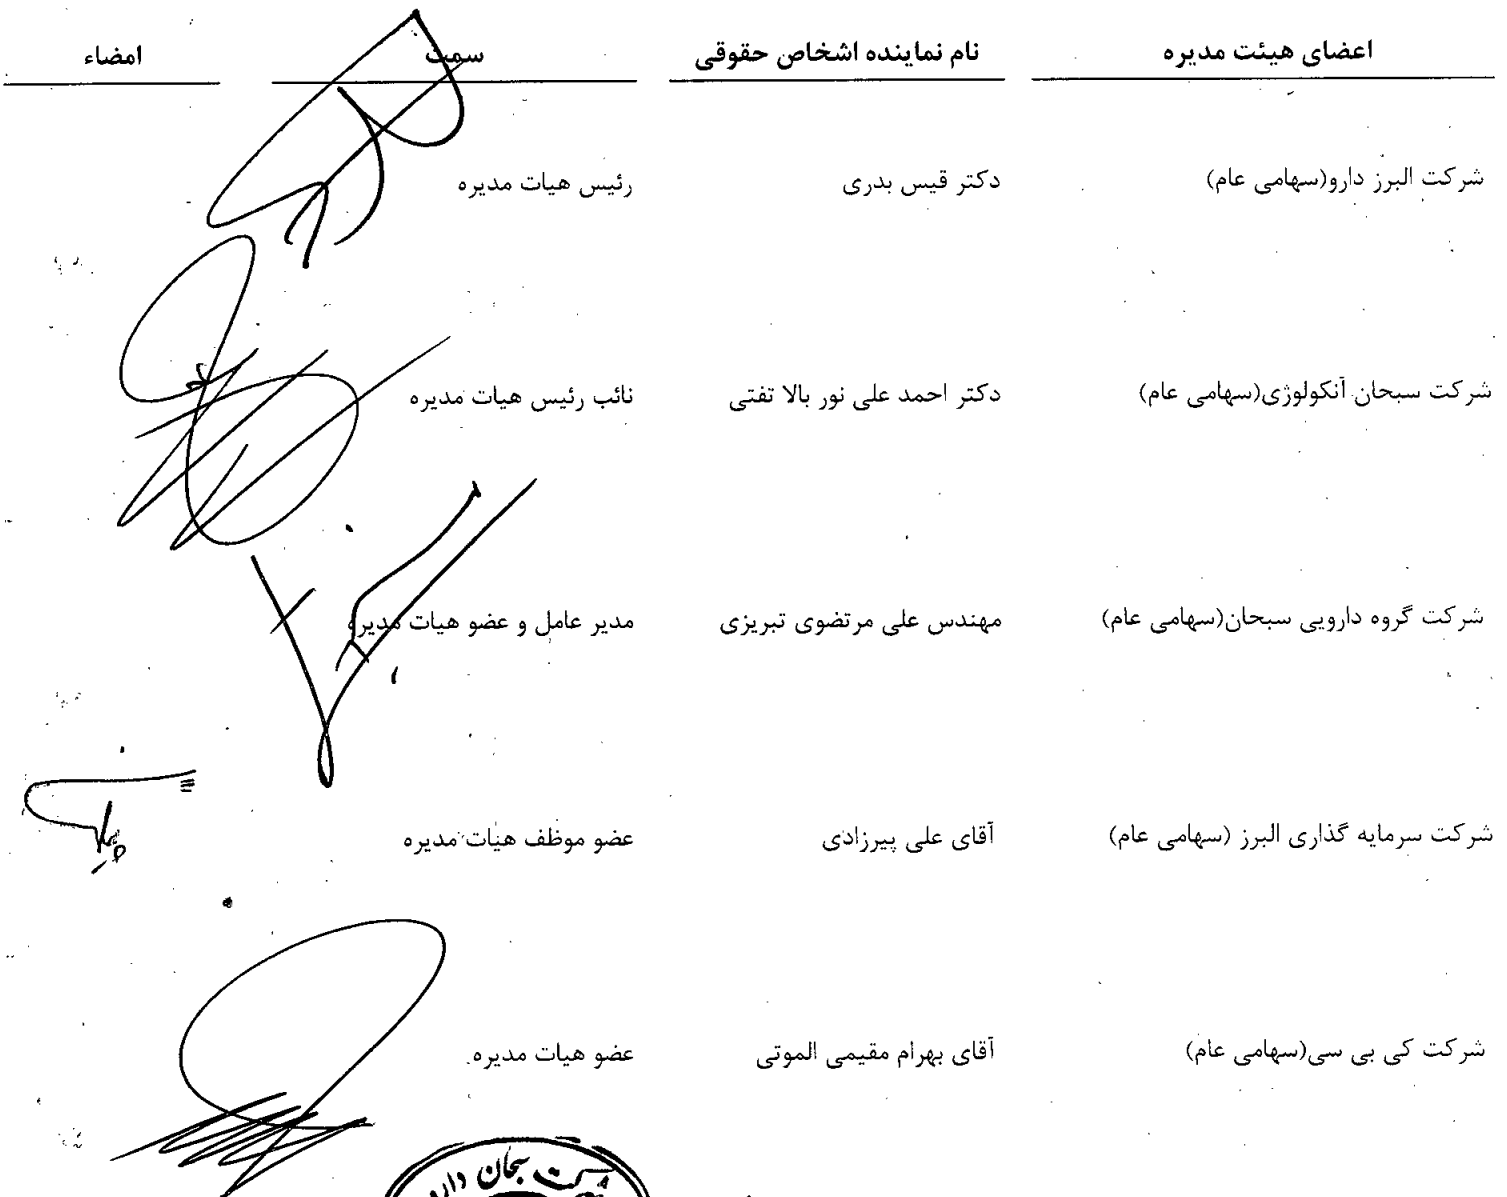 اعضای هیئت مدیره نام نماینده اشخاص حقوقی سمت امضاء
شرکت البرز دارو(سهامی عام) دکتر قیس بدری رئیس هیات مدیره
شرکت سبحان آنکولوژی(سهامی عام) دکتر احمد علی نور بالا تفتی نائب رئیس هیات مدیره
شرکت گروه دارویی سبحان(سهامی عام) مهندس علی مرتضوی تبریزی مدیر عامل و عضو هیات مدیره
شرکت سرمایه گذاری البرز (سهامی عام) آقای علی پیرزادی عضو موظف هیات مدیره
شرکت کی بی سی(سهامی عام) آقای بهرام مقیمی الموتی عضو هیات مدیره
شرکت سبحان دارو